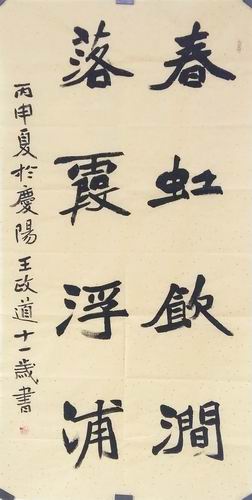 春虹飲澗
落霞浮浦
丙申夏於慶陽王政道十一歲書